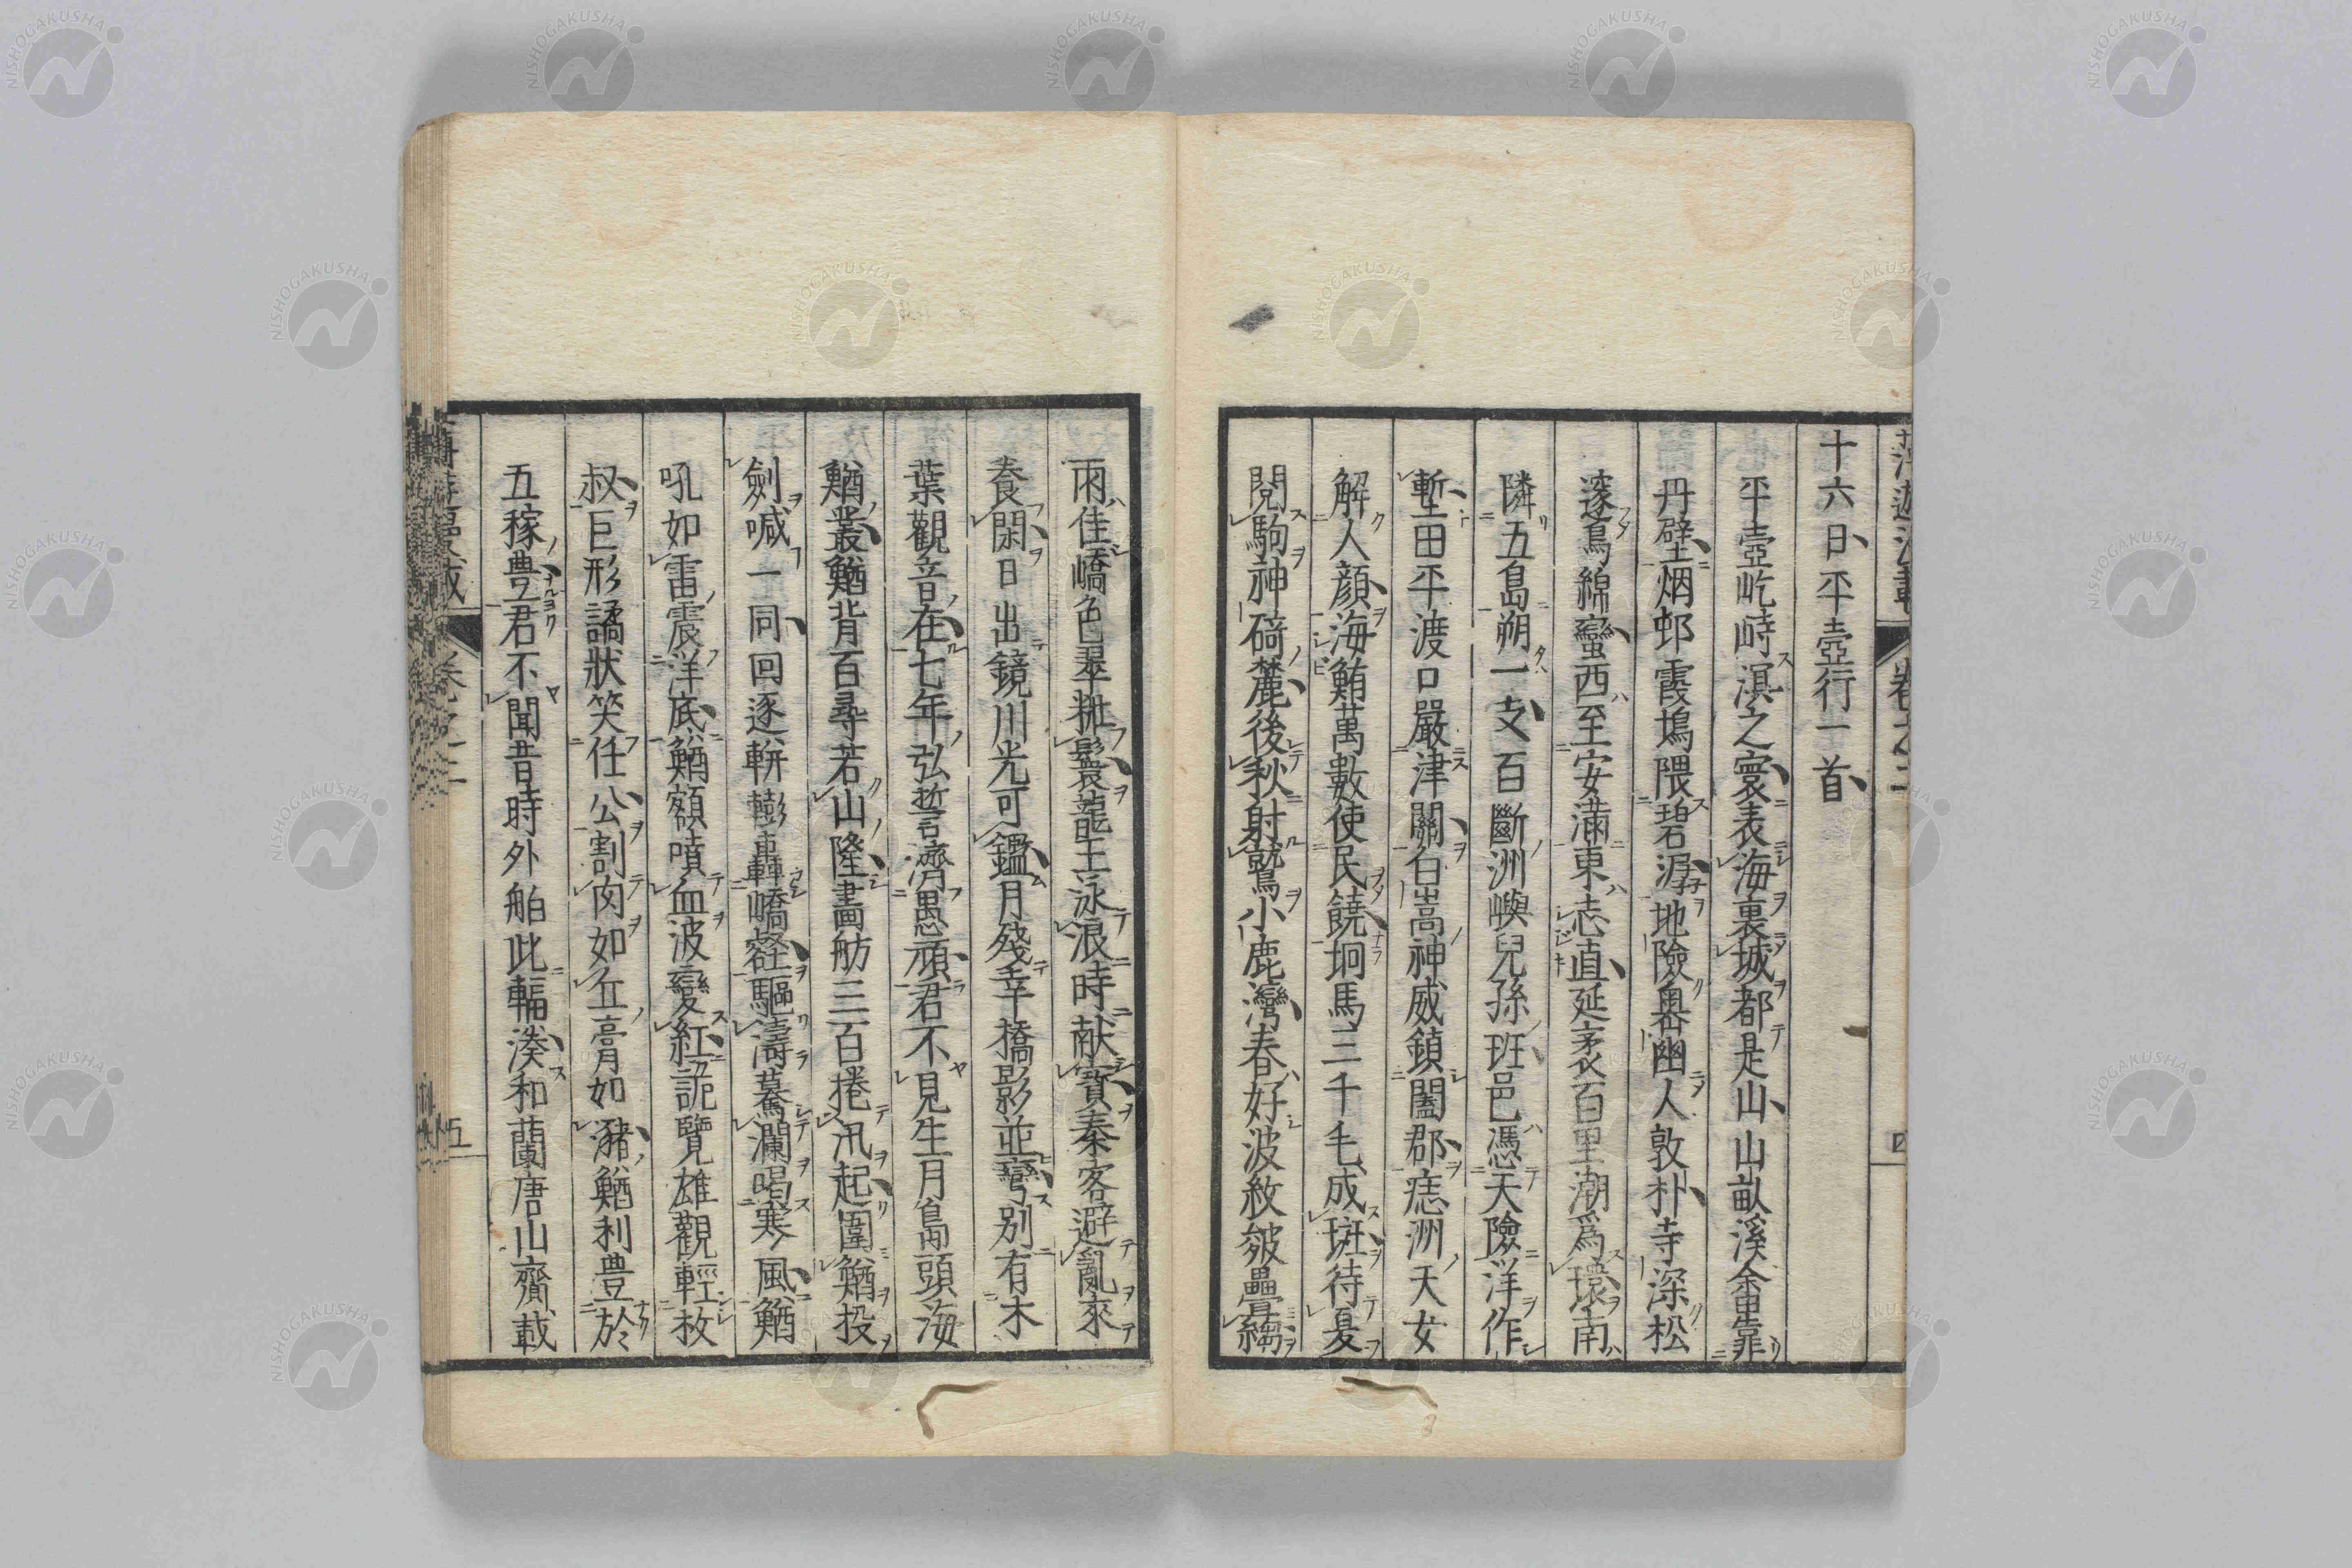 十六日平壺行一首
平壺屹峙溟之寰表海裏城都是山山畝溪畬星靠
丹壁烟邨霞塢隈碧潯地險奧幽人敦朴寺深松
邃鳥綿蠻西至安滿東志直延袤百里潮爲環南
隣五島朔一支百斷洲嶼兒孫班邑憑天險洋作
塹田平渡口嚴津關白嵩神威鎮闔郡痣洲天女
解人顔海鮪萬數使民饒坰馬三千毛成斑待夏
閲駒神碕麓後秋射鷲小鹿灣春好波紋皴疊縐
雨佳嶠色翠粧鬟龍王泳浪時献寳秦客避亂來
養閑日出鏡川光可鑑月殘幸橋影並彎別有木
葉觀音在七年弘哲濟愚頑君不見生月島頭海
鰌叢鰌背百尋若山隆畫舫三百捲汛起圍鰌投
劍喊一同回逐軿轟嶠壑驅濤驀瀾喝寒風鰌
吼如雷震洋底鰌額噴血波變紅詭覽雄觀輕枚
叔巨形譎狀笑任公割肉如丘膏如瀦鰌利豊於
五稼豊君不聞昔時外舶此輻湊和蘭唐山齎載
卷之二
四
五
NISHOGAKUSHA